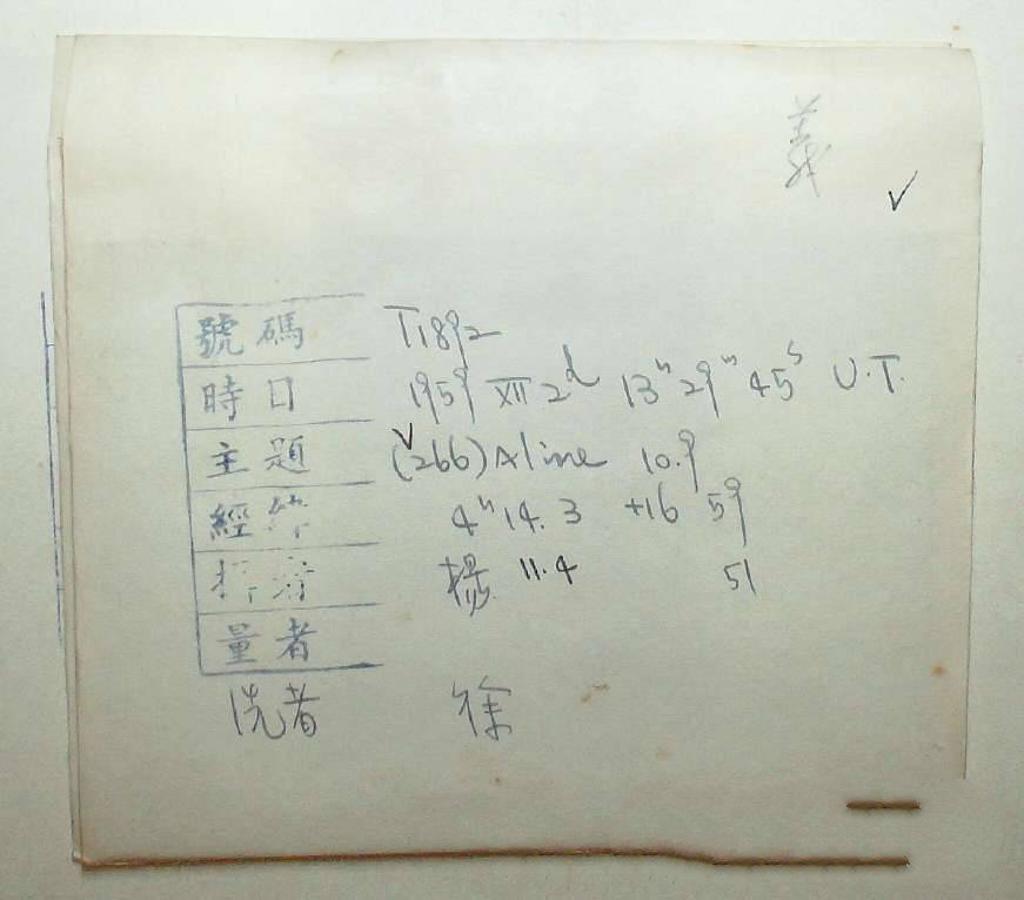 義
號碼 T1892
時日 1959 XII 2d 13h 29m 45s U.T.
主題 (266) Aline 10.9
經緯 4h 14.3 +16 59
者 楊 11.4 51
量者
洗者 徐